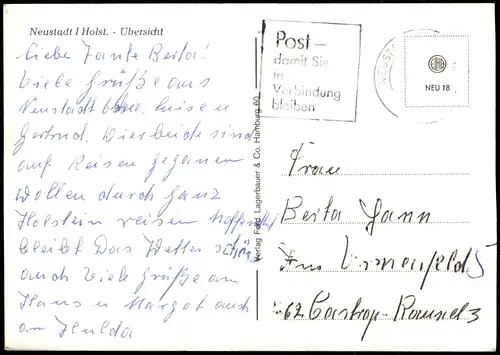 Neustadt I Holst. - Übersicht
Liebe Tante Berta!
Viele Grüße aus
Neustadt Luise u
Gertrud. Wir beide sind
auf Reisen gegangen
wollen durch ganz
Holstein reisen hoffentlich
bleibt Das Wetter schön
auch Viele Grüße an
Hans u Margot auch
an Hulda
Verlag Ferd. Lagerbauer & Co. Hamburg 60
Post –
damit Sie
in
Verbindung
bleiben
NEUST
NEU 18
Frau
Berta Hann
Am Urnenfeld 5
462 Castrop-Rauxel 3